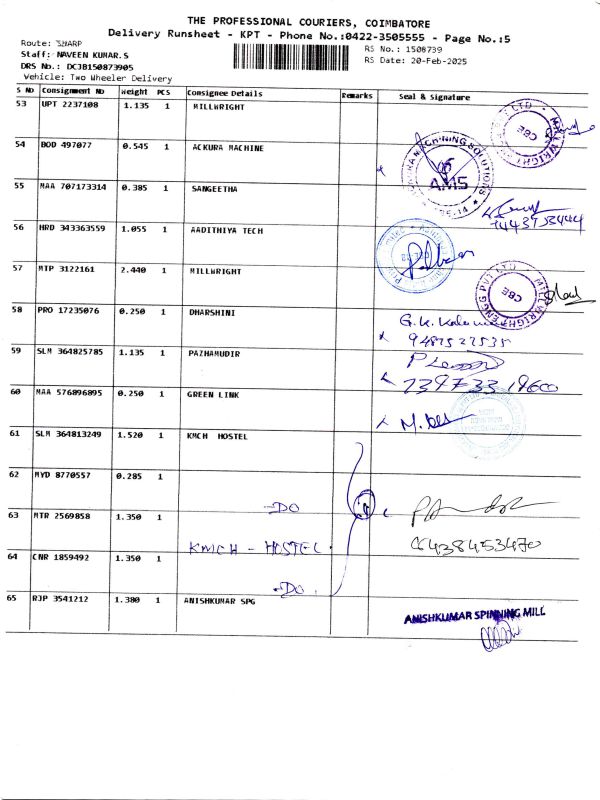 THE PROFESSIONAL COURIERS, COIMBATORE
Delivery Runsheet - KPT - Phone No.:0422-3505555 - Page No.:5
Route: SHARP
Staff: NAVEEN KUMAR.S
DRS No.: DCJB150873905
Vehicle: Two Wheeler Delivery
RS No.: 1508739
RS Date: 20-Feb-2025
S No Consignment No Weight PCS Consignee Details Remarks Seal & Signature
53 UPT 2237108 1.135 1 MILLWRIGHT
CBE
54 BOD 497077 0.545 1 ACKURA MACHINE
AMS
55 MAA 707173314 0.385 1 SANGEETHA
56 HRD 343363559 1.055 1 AADITHIYA TECH
57 MTP 3122161 2.440 1 MILLWRIGHT
MILLWRIGHT ENGG PVT LTD
CBE
58 PRO 17235076 0.250 1 DHARSHINI
59 SLM 364825785 1.135 1 PAZHAMUDIR
60 MAA 576896895 0.250 1 GREEN LINK
61 SLM 364813249 1.520 1 KMCH HOSTEL
62 MYD 8770557 0.285 1
-DO
63 MTR 2569858 1.350 1
KMCH - HOSTEL
6438453470
64 CNR 1859492 1.350 1
-DO.
65 RJP 3541212 1.380 1 ANISHKUMAR SPG
ANISHKUMAR SPINNING MILL